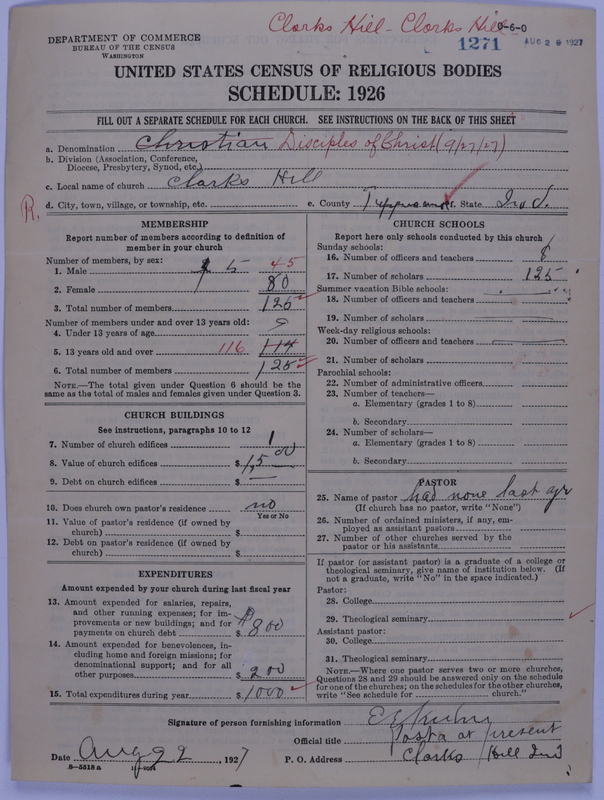 Clarks Hill - Clarks Hill
0-6-0
1271
AUG 29 1927
DEPARTMENT OF COMMERCE
BUREAU OF THE CENSUS
WASHINGTON
UNITED STATES CENSUS OF RELIGIOUS BODIES
SCHEDULE: 1926
FILL OUT A SEPARATE SCHEDULE FOR EACH CHURCH. SEE INSTRUCTIONS ON THE BACK OF THIS SHEET
a. Denomination Christian Disciples of Christ (9/27/27)
b. Division (Association, Conference,
Diocese, Presbytery, Synod, etc.)
c. Local name of church Clarks Hill
R.
d. City, town, village, or township, etc. e. County f. State Ind.
MEMBERSHIP
Report number of members according to definition of
member in your church
Number of members, by sex:
1. Male 45 45
2. Female 80
3. Total number of members 125
Number of members under and over 13 years old:
4. Under 13 years of age 9
5. 13 years old and over 116 114
6. Total number of members 125
NOTE.—The total given under Question 6 should be
same as the total of males and females given under Question 3.
CHURCH BUILDINGS
See instructions, paragraphs 10 to 12
7. Number of church edifices 1
8. Value of church edifices $1,500
9. Debt on church edifices $ —
10. Does church own pastor's residence no
Yes or No
11. Value of pastor's residence (if owned by
church) $
12. Debt on pastor's residence (if owned by
church) $
EXPENDITURES
Amount expended by your church during last fiscal year
13. Amount expended for salaries, repairs,
and other running expenses; for im-
provements or new buildings; and for
payments on church debt $ $800
14. Amount expended for benevolences, in-
cluding home and foreign missions; for
denominational support; and for all
other purposes $ 200
15. Total expenditures during year $ 1000
CHURCH SCHOOLS
Report here only schools conducted by this church
Sunday schools:
16. Number of officers and teachers 8
17. Number of scholars 125
Summer vacation Bible schools:
18. Number of officers and teachers
19. Number of scholars
Week-day religious schools:
20. Number of officers and teachers
21. Number of scholars
Parochial schools:
22. Number of administrative officers
23. Number of teachers—
a. Elementary (grades 1 to 8)
b. Secondary
24. Number of scholars—
a. Elementary (grades 1 to 8)
b. Secondary
PASTOR
25. Name of pastor had none last yr
(If church has no pastor, write "None")
26. Number of ordained ministers, if any, em-
ployed as assistant pastors
27. Number of other churches served by the
pastor or his assistants
If pastor (or assistant pastor) is a graduate of a college or
theological seminary, give name of institution below. (If
not a graduate, write "No" in the space indicated.)
Pastor:
28. College
29. Theological seminary
Assistant pastor:
30. College
31. Theological seminary
NOTE.—Where one pastor serves two or more churches,
Questions 28 and 29 should be answered only on the schedule
for one of the churches; on the schedules for the other churches,
write "See schedule for church."
Signature of person furnishing information
Official title at present
Date Aug 22, 1927 P. O. Address Clarks Hill Ind
8—5518 a